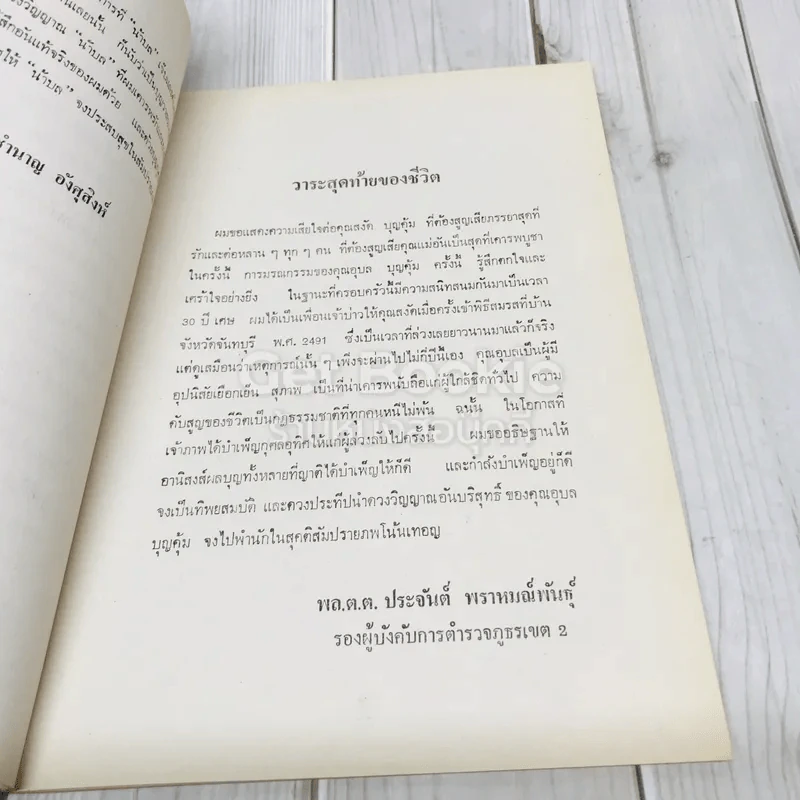 การที่ "น้าบล"
วิญญาณ "น้าบล" ที่ผมเคารพรัก
ให้ "น้าบล" จงประสบสุขในสัมปราย
ชำนาญ อังศุสิงห์
วาระสุดท้ายของชีวิต
ผมขอแสดงความเสียใจต่อคุณสงัด บุญคุ้ม ที่ต้องสูญเสียภรรยาสุดที่
รักและต่อหลาน ๆ ทุก ๆ คน ที่ต้องสูญเสียคุณแม่อันเป็นสุดที่เคารพบูชา
ในครั้งนี้ การมรณกรรมของคุณอุบล บุญคุ้ม ครั้งนี้ รู้สึกตกใจและ
เศร้าใจอย่างยิ่ง ในฐานะที่ครอบครัวนี้มีความสนิทสนมกันมาเป็นเวลา
30 ปี เศษ ผมได้เป็นเพื่อนเจ้าบ่าวให้คุณสงัดเมื่อครั้งเข้าพิธีสมรสที่บ้าน
จังหวัดจันทบุรี พ.ศ. 2491 ซึ่งเป็นเวลาที่ล่วงเลยยาวนานมาแล้วก็จริง
แต่ดูเสมือนว่าเหตุการณ์นั้น ๆ เพิ่งจะผ่านไปไม่กี่ปีนี้เอง คุณอุบลเป็นผู้มี
อุปนิสัยเยือกเย็น สุภาพ เป็นที่น่าเคารพนับถือแก่ผู้ใกล้ชิดทั่วไป ความ
ดับสูญของชีวิตเป็นกฎธรรมชาติที่ทุกคนหนีไม่พ้น ฉนั้น ในโอกาสที่
เจ้าภาพได้บำเพ็ญกุศลอุทิศให้แก่ผู้ล่วงลับไปครั้งนี้ ผมขออธิษฐานให้
อานิสงส์ผลบุญทั้งหลายที่ญาติได้บำเพ็ญให้ก็ดี และกำลังบำเพ็ญอยู่ก็ดี
จงเป็นทิพยสมบัติ และดวงประทีปนำดวงวิญญาณอันบริสุทธิ์ ของคุณอุบล
บุญคุ้ม จงไปพำนักในสุคติสัมปรายภพโน้นเทอญ
พล.ต.ต. ประจันต์ พราหมณ์พันธุ์
รองผู้บังคับการตำรวจภูธรเขต 2
Get Bookie
ร้านหนังสือบุ๊คกี้